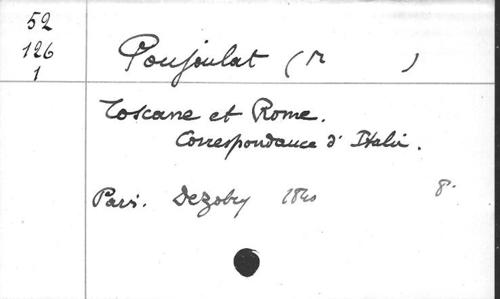 52
126
1
Poujoulat (M )
Toscane et Rome.
Correspondance d'Italie.
Paris. Dezobry 1840 8°